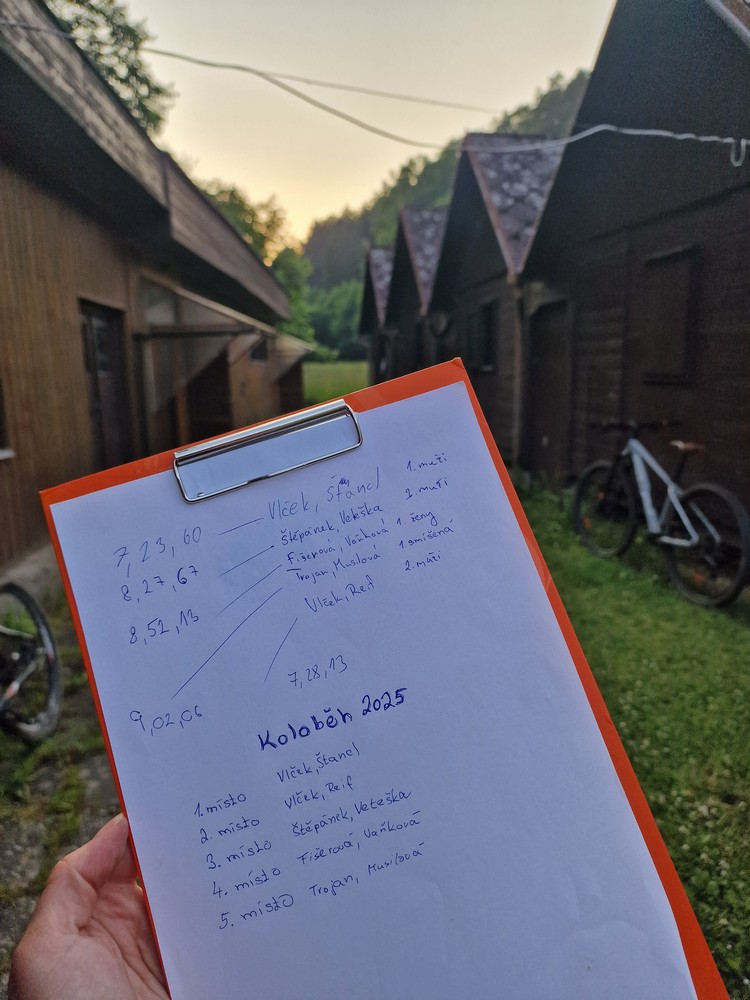 7,23,60 Vlček, Štancl 1. muži
8,27,67 Štěpánek, Veteška 3. muži
8,52,13 Fišerová, Vaňková 1. ženy
9,02,06 Trojan, Musilová 1 smíšená
Vlček, Reif 2. muži
7,28,13
Koloběh 2025
1. místo Vlček, Štancl
2. místo Vlček, Reif
3. místo Štěpánek, Veteška
4. místo Fišerová, Vaňková
5. místo Trojan, Musilová